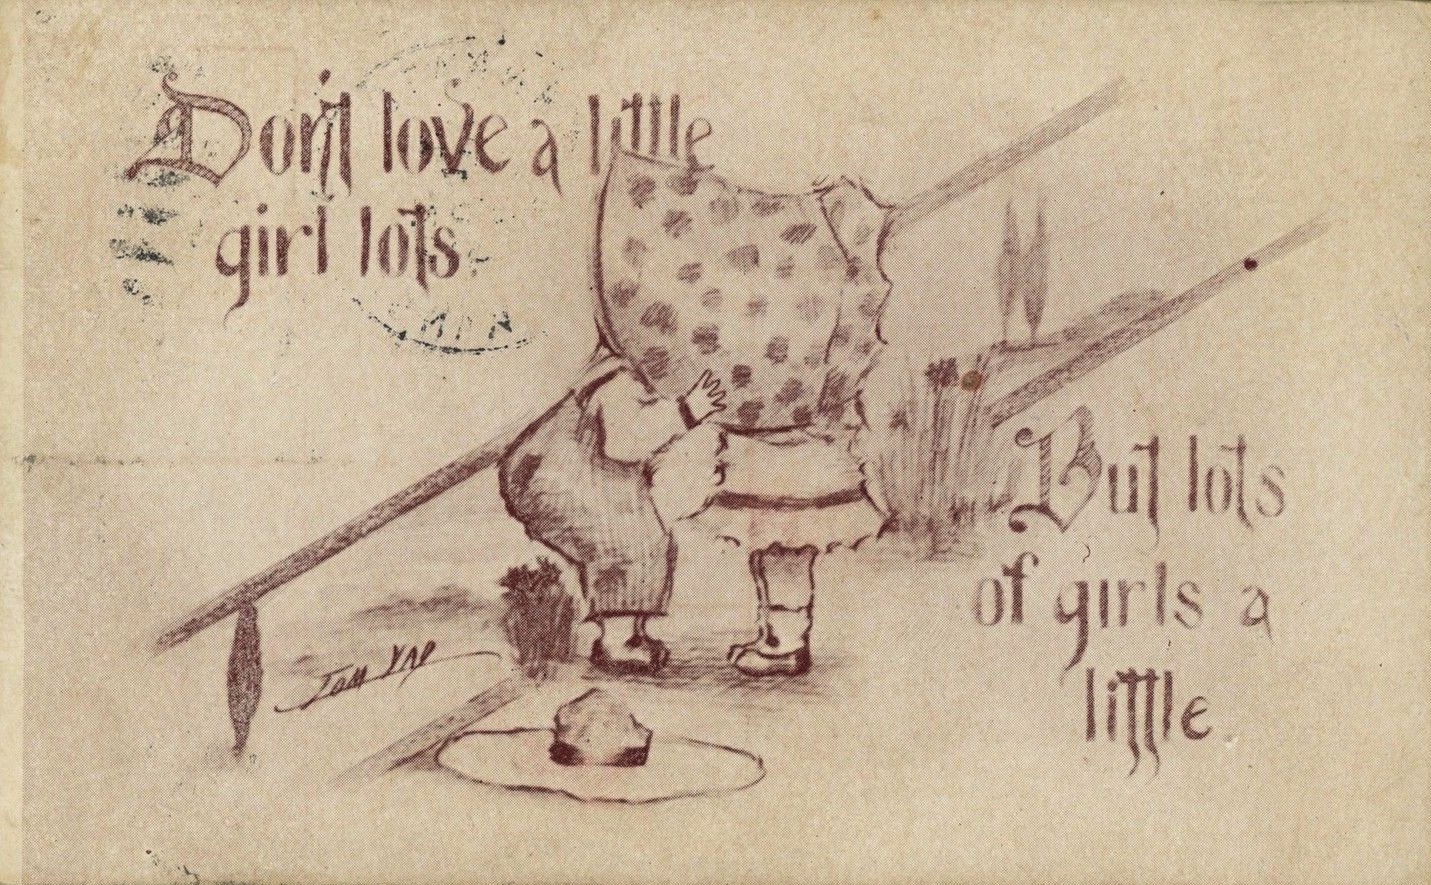 Don't love a little
girl lots.
But lots
of girls a
little.
TOM YAP